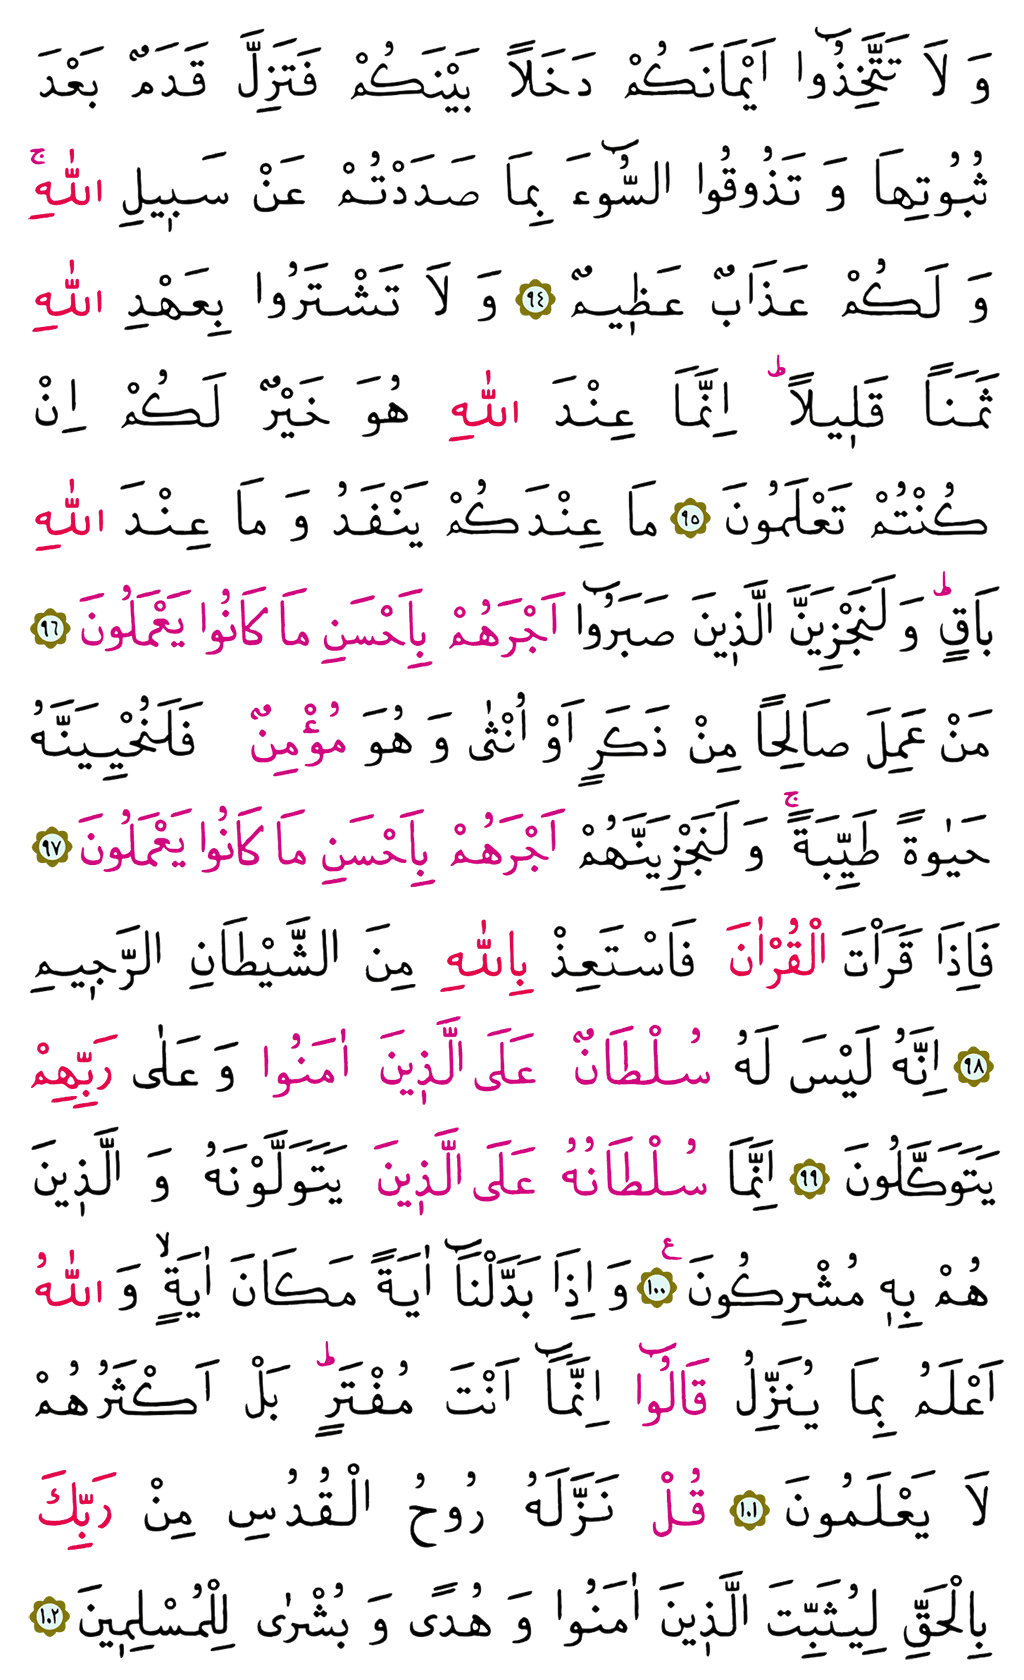 وَ لَا تَتَّخِذُٓوا اَيْمَانَكُمْ دَخَلاً بَيْنَكُمْ فَتَزِلَّ قَدَمٌ بَعْدَ
ثُبُوتِهَا وَ تَذُوقُوا السُّٓوءَ بِمَا صَدَدْتُمْ عَنْ سَبٖيلِ اللّٰهِۚ
وَ لَكُمْ عَذَابٌ عَظٖيمٌ ﴿٩٤﴾ وَ لَا تَشْتَرُوا بِعَهْدِ اللّٰهِ
ثَمَناً قَلٖيلاًؕ اِنَّمَا عِنْدَ اللّٰهِ هُوَ خَيْرٌ لَكُمْ اِنْ
كُنْتُمْ تَعْلَمُونَ ﴿٩٥﴾ مَا عِنْدَكُمْ يَنْفَدُ وَ مَا عِنْدَ اللّٰهِ
بَاقٍؕ وَ لَنَجْزِيَنَّ الَّذٖينَ صَبَرُٓوا اَجْرَهُمْ بِاَحْسَنِ مَا كَانُوا يَعْمَلُونَ ﴿٩٦﴾
مَنْ عَمِلَ صَالِحاً مِنْ ذَكَرٍ اَوْ اُنْثٰى وَ هُوَ مُؤْمِنٌ فَلَنُحْيِيَنَّهُ
حَيٰوةً طَيِّبَةًۚ وَ لَنَجْزِيَنَّهُمْ اَجْرَهُمْ بِاَحْسَنِ مَا كَانُوا يَعْمَلُونَ ﴿٩٧﴾
فَاِذَا قَرَاْتَ الْقُرْاٰنَ فَاسْتَعِذْ بِاللّٰهِ مِنَ الشَّيْطَانِ الرَّجٖيمِ
﴿٩٨﴾ اِنَّهُ لَيْسَ لَهُ سُلْطَانٌ عَلَى الَّذٖينَ اٰمَنُوا وَ عَلٰى رَبِّهِمْ
يَتَوَكَّلُونَ ﴿٩٩﴾ اِنَّمَا سُلْطَانُهُ عَلَى الَّذٖينَ يَتَوَلَّوْنَهُ وَ الَّذٖينَ
هُمْ بِهٖ مُشْرِكُونَ ﴿١٠٠﴾ ع وَ اِذَا بَدَّلْنَٓا اٰيَةً مَكَانَ اٰيَةٍۙ وَ اللّٰهُ
اَعْلَمُ بِمَا يُنَزِّلُ قَالُٓوا اِنَّمَٓا اَنْتَ مُفْتَرٍؕ بَلْ اَكْثَرُهُمْ
لَا يَعْلَمُونَ ﴿١٠١﴾ قُلْ نَزَّلَهُ رُوحُ الْقُدُسِ مِنْ رَبِّكَ
بِالْحَقِّ لِيُثَبِّتَ الَّذٖينَ اٰمَنُوا وَ هُدًى وَ بُشْرٰى لِلْمُسْلِمٖينَ ﴿١٠٢﴾